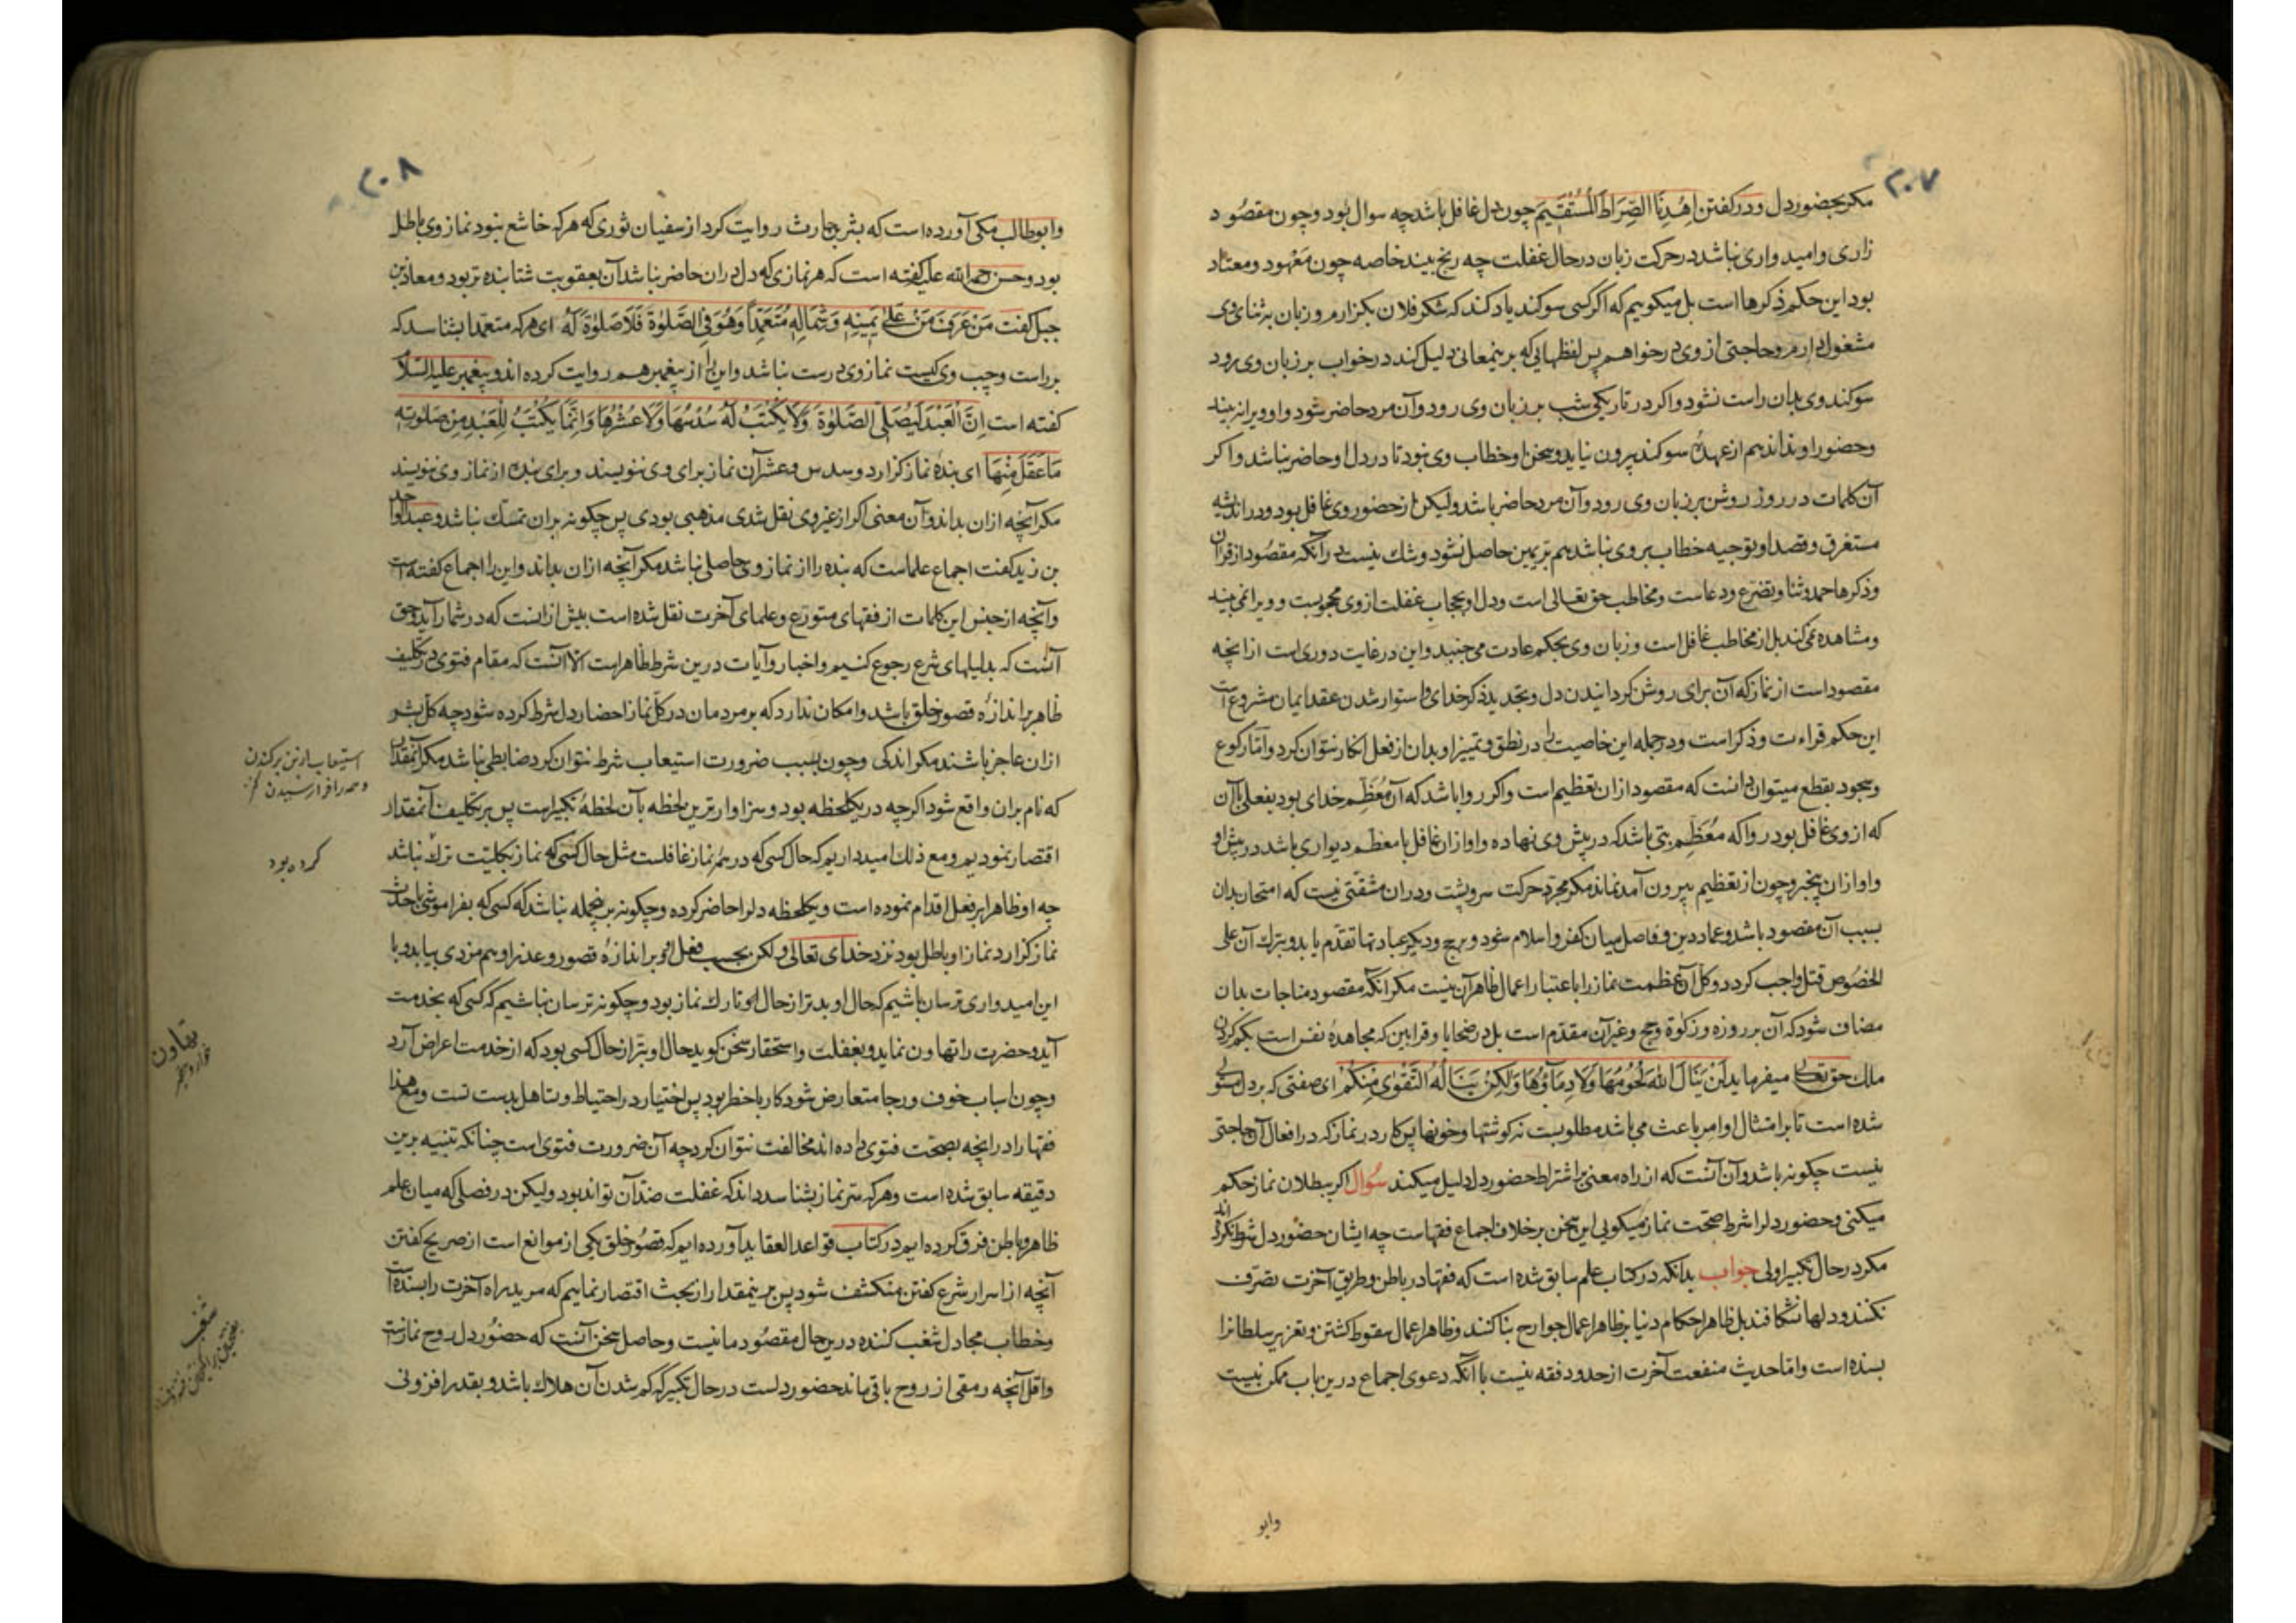 ۲۰۷
مکر بحضور دل ودر کفتن اِهْدِنَا الصِّرَاطَ الْمُسْتَقِیمَ چون دل غافل باشد چه سوال بود وچون مقصود
زاری وامیدواری نباشد در حرکت زبان در حال غفلت چه رنج بیند خاصه چون معهود ومعتاد
بود این حکم ذکرها است بل میکوییم که اکر کسی سوکند یاد کند که شکر فلان بکزارم وزبان بثنای وی
مشغول دارم وحاجتی از وی درخواهم پس لفظهایی که برینمعانی دلیل کند در خواب بر زبان وی رود
سوکند وی بدان راست نشود واکر در تاریکی شب بر زبان وی رود وآن مرد حاضر شود واو ویرا نه بیند
وحضور او نداند هم از عهدهٔ سوکند بیرون نیاید وسخن او خطاب وی نبود تا در دل او حاضر نباشد واکر
آن کلمات در روز روشن بر زبان وی رود وآن مرد حاضر باشد ولیکن از حضور وی غافل بود ودر اندیشه
مستغرق وقصد او توجیه خطاب بر وی نباشد هم بریمین حاصل نشود وشك نیست درآنکه مقصود از قرآن
وذکرها حمد وثنا وتضرع ودعاست ومخاطب حق تعالی است ودل او بحجاب غفلت از وی محجوبست وویرا نمی بیند
ومشاهده نمی کند بل از مخاطب غافل است وزبان وی بحکم عادت می جنبد واین در غایت دوری است از انچه
مقصود است از نماز که آن برای روشن کردانیدن دل وتجدید ذکر خدای واستوار شدن عقد ایمان مشروع است
این حکم قراءت وذکر است ودر جمله این خاصیت را در نطق وتمییز او بدان از فعل انکار نتوان کرد واما رکوع
وسجود بقطع میتوان دانست که مقصود ازان تعظیم است واکر روا باشد که آن مُعَظِّم خدای بود بفعلی باآن
که از وی غافل بود روا که مُعَظِّم بتی باشد که در پیش وی نهاده واو ازان غافل یا معظم دیواری باشد در پیش او
واو ازان بیخبر وچون از تعظیم بیرون آمد نماند مکر مجرد حرکت سر وپشت ودران مشقتی نیست که امتحان بدان
بسبب آن مقصود باشد وعماد دین وفاصل میان کفر واسلام شود وبرحج ودیکر عبادتها تقدّم یابد وبترك آن علی
الخصوص قتل واجب کردد وکل آن عظمت نماز را باعتبار اعمال ظاهر آن نیست مکر انکه مقصود مناجات بدان
مضاف شود که آن بر روزه وزکوة وحج وغیرآن مقدّم است بل در ضحایا وقرابین که مجاهدهٔ نفس است بکم کردن
ملك حق تعالی میفرماید لَنْ یَنَالَ اللهَ لُحُومُهَا وَلَا دِمَاؤُهَا وَلَکِنْ یَنَالُهُ التَّقْوٰی مِنْکُمْ ای صفتی که بر دل مستولی
شده است تا بر امتثال اوامر باعث می باشد مطلوبست نه کوشتها وخونها پس کار در نماز که در افعال آن حاجتی
نیست چکونه باشد وآن آنست که از راه معنی بر اشتراط حضور دل دلیل میکند سُوال اکر ببطلان نماز حکم
میکنی وحضور دل را شرط صحت نماز میکویی این سخن برخلاف اجماع فقهاست چه ایشان حضور دل شرط نکرده اند
مکر در حال تکبیر اولی جواب بدانکه در کتاب علم سابق شده است که فقها در باطن وطریق آخرت تصرّف
نکنند ودلها نشکافند بل ظاهر احکام دنیا بر ظاهر اعمال جوارح بنا کنند وظاهر اعمال سقوط کشتن وتعزیر سلطانرا
بسنده است واما حدیث منفعت آخرت از حدود فقه نیست باآنکه دعوی اجماع درین باب ممکن نیست
وابو
۲۰۸
وابوطالب مکی آورده است که بشر بن حارث روایت کرد از سفیان ثوری که هرکه خاشع نبود نماز وی باطل
بود وحسن رحمه الله علیه کفته است که هر نمازی که دل دران حاضر نباشد آن بعقوبت شتابنده تر بود ومعاذ بن
جبل کفت مَنْ عَرَفَ مَنْ عَلیٰ یَمِینِهِ وَشِمَالِهِ مُتَعَمِّداً وَهُوَ فِی الصَّلوٰةِ فَلَا صَلوٰةَ لَهُ ای هرکه متعمدا بشناسد که
بر راست وچپ وی کیست نماز وی درست نباشد واین را از پیغمبر هم روایت کرده اند وپیغمبر علیه السلام
کفته است اِنَّ الْعَبْدَ لَیُصَلِّی الصَّلوٰةَ وَلَا یُکْتَبُ لَهُ سُدُسُهَا وَلَا عُشْرُهَا وَاِنَّمَا یُکْتَبُ لِلْعَبْدِ مِنْ صَلوٰتِهِ
مَا عَقَلَ مِنْهَا ای بندهٔ نماز کزارد وسدس وعشر آن نماز برای وی ننویسند وبرای بنده از نماز وی ننویسند
مکر آنچه ازان بداند وآن معنی اکر از غیر وی نقل شدی مذهبی بودی پس چکونه بران تمسك نباشد وعبدالواحد
بن زید کفت اجماع علماست که بنده را از نماز وی حاصلی نباشد مکر آنچه ازان بداند واین را اجماع کفته است
وآنچه از جنس این کلمات از فقهای متورع وعلمای آخرت نقل شده است بیش ازانست که در شمار آید وحق
آنست که بدلیلهای شرع رجوع کنیم واخبار وآیات درین شرط ظاهر است الا آنست که مقام فتوی در تکلیف
ظاهر بر اندازهٔ قصور خلق باشد وامکان ندارد که بر مردمان در کل نماز احضار دل شرط کرده شود چه کل بشر
ازان عاجز باشند مکر اندکی وچون بسبب ضرورت استیعاب شرط نتوان کرد ضابطی نباشد مکر آنمقدار
که نام بران واقع شود اکرچه در یکلحظه بود وسزاوارترین لحظه بآن لحظهٔ تکبیراست پس بر تکلیف آنمقدار
اقتصار نمودیم ومع ذلك امید داریم که حال کسی که در همه نماز غافلست مثل حال کسی که نماز بکلیّت ترك نباشد
چه او ظاهرا بر فعل اقدام نموده است ویکلحظه دلرا حاضر کرده وچکونه برینجمله نباشد که کسی که بفراموشی باحدث
نماز کزارد نماز او باطل بود نزد خدای تعالی ولکن بحسب فعل او بر اندازهٔ قصور وعذر او هم مزدی بیابد وبا
این امیدواری ترسان باشیم که حال او بدتر از حال تارك نماز بود وچکونه ترسان نباشیم که کسی که بخدمت
آید وحضرت را تهاون نماید وبغفلت واستحقار سخن کوید حال او بتر از حال کسی بود که از خدمت اعراض آرد
وچون اسباب خوف ورجا متعارض شود کار باخطر بود پس اختیار در احتیاط وتساهل بدست تست ومع هذا
فقها را در انچه بصحّت فتوی داده اند مخالفت نتوان کرد چه آن ضرورت فتوی است چنانکه تنبیه برین
دقیقه سابق شده است وهرکه سرّ نماز بشناسد داند که غفلت ضدّ آن تواند بود ولیکن در فصلی که میان علم
ظاهر وباطن فرق کرده ایم در کتاب قواعد العقاید آورده ایم که قصور خلق یکی از موانع است از صریح کفتن
آنچه از اسرار شرع کفتن منکشف شود پس برینمقدار از بحث اقتصار نماییم که مرید راه آخرت را بسنده است
وخطاب مجادل شغب کننده درین حال مقصود ما نیست وحاصل سخن آنست که حضور دل روح نمازست
واقل آنچه رمقی از روح باقی ماند حضور دلست در حال تکبیر که کم شدن آن هلاك باشد وبقدر افزونی
استیعاب از بن برکندن
وهمه را فرا رسیدن
کرده بود
تهاون
شغب